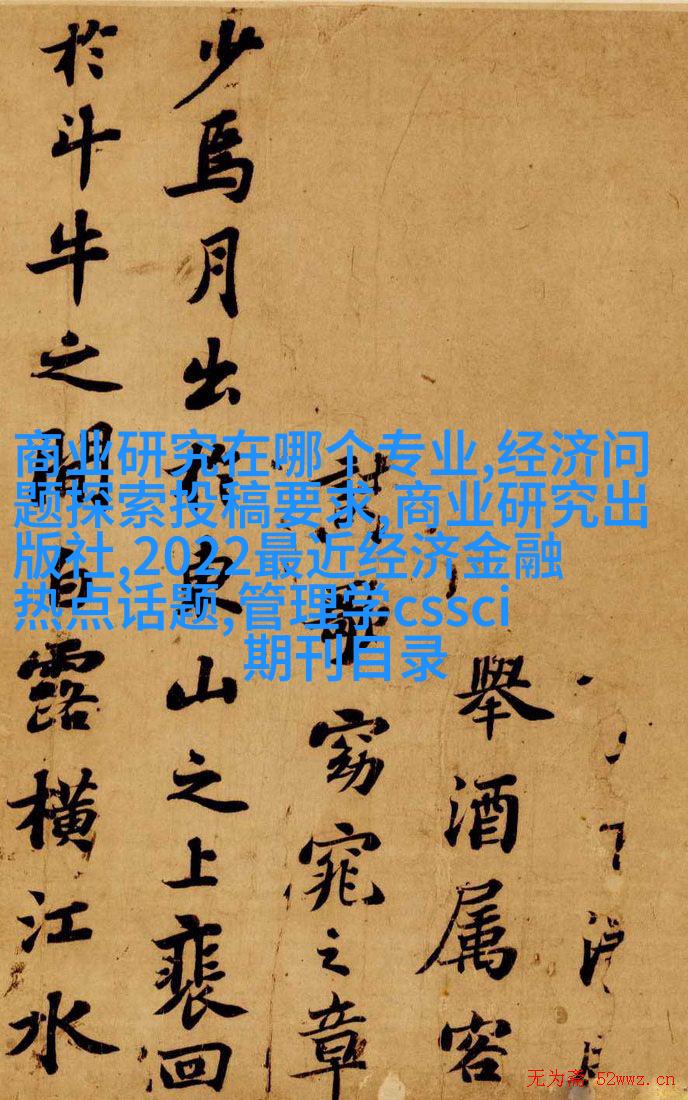 舉酒属客
歌窈窕之章
少焉月出於東山之上裴回
於斗牛之間白露横江水
商业研究在哪个专业,经济问
题探索投稿要求,商业研究出
版社,2022最近经济金融
热点话题,管理学cssci
期刊目录
无为斋 52wwz.cn